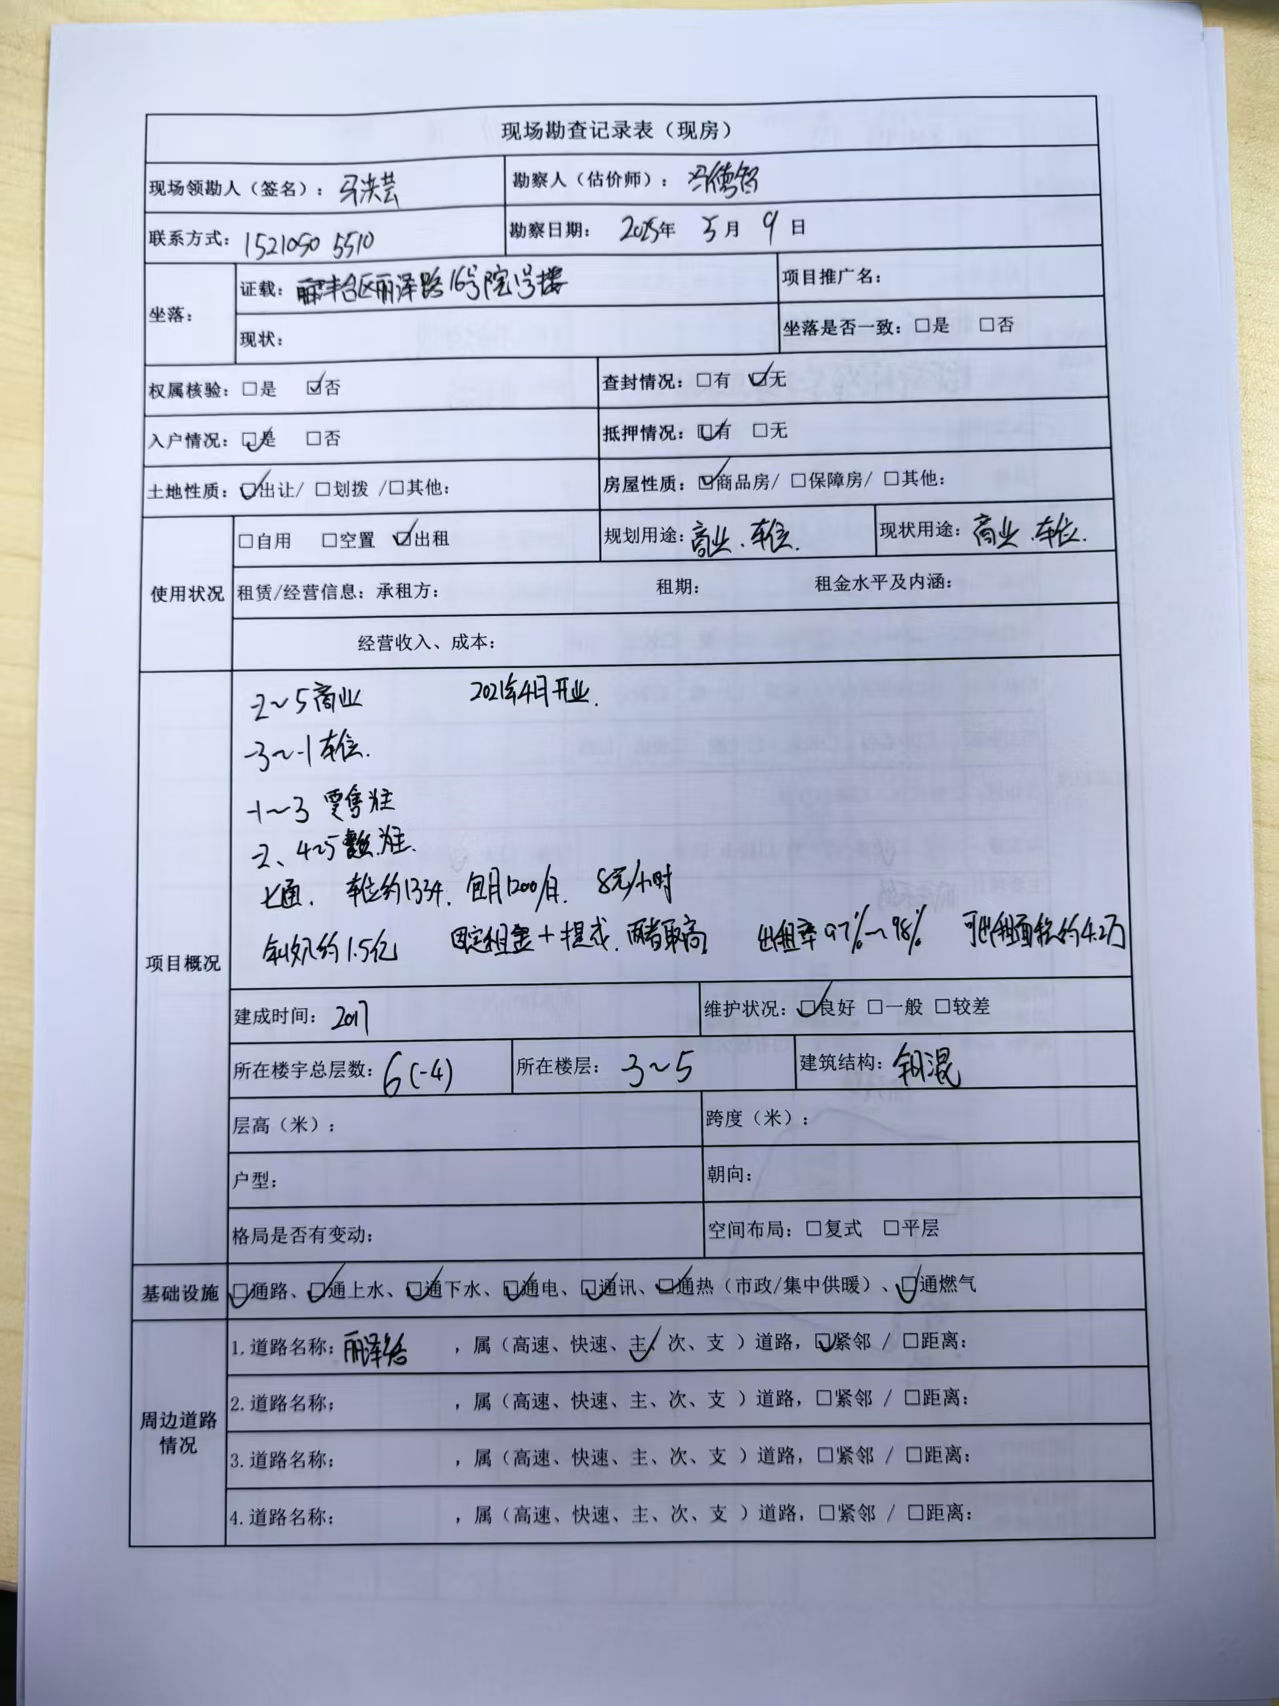 现场勘查记录表（现房）
现场领勘人（签名）： 马洪芸 勘察人（估价师）： 冯德智
联系方式： 1521050 5510 勘察日期： 2025年 5月 9日
坐落： 证载： 丰台区丽泽路16号院1号楼 项目推广名：
现状： 坐落是否一致：□是 □否
权属核验：□是 ☑否 查封情况：□有 ☑无
入户情况：☑是 □否 抵押情况：☑有 □无
土地性质：☑出让/ □划拨 /□其他： 房屋性质：☑商品房/ □保障房/ □其他：
使用状况 □自用 □空置 ☑出租 规划用途：商业、车位. 现状用途：商业、车位.
租赁/经营信息：承租方： 租期： 租金水平及内涵：
经营收入、成本：
项目概况
-2～5商业 2021年4月开业.
-3～-1车位.
-1～3 零售为主
-2、4~5餐饮为主.
七通. 车位约1334. 包月1200/月. 8元/小时
年收入约1.5亿 固定租金+提成.两者取高 出租率97%～98% 可出租面积约4.2万
建成时间： 2017 维护状况：☑良好 □一般 □较差
所在楼宇总层数： 6(-4) 所在楼层： 3～5 建筑结构： 钢混
层高（米）： 跨度（米）：
户型： 朝向：
格局是否有变动： 空间布局：□复式 □平层
基础设施 ☑通路、☑通上水、☑通下水、☑通电、☑通讯、☑通热（市政/集中供暖）、☑通燃气
周边道路情况
1.道路名称：丽泽路 ，属（高速、快速、主✓、次、支 ）道路，☑紧邻 / □距离：
2.道路名称： ，属（高速、快速、主、次、支 ）道路，□紧邻 / □距离：
3.道路名称： ，属（高速、快速、主、次、支 ）道路，□紧邻 / □距离：
4.道路名称： ，属（高速、快速、主、次、支 ）道路，□紧邻 / □距离：